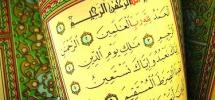 الرَّحْمَٰنِ الرَّحِيمِ
لِلَّهِ رَبِّ الْعَٰلَمِينَ ۝ الرَّحْمَٰنِ
۝ مَٰلِكِ يَوْمِ الدِّينِ ۝
نَعْبُدُ وَإِيَّاكَ نَسْتَعِينُ ۝
الصِّرَٰطَ الْمُسْتَقِيمَ